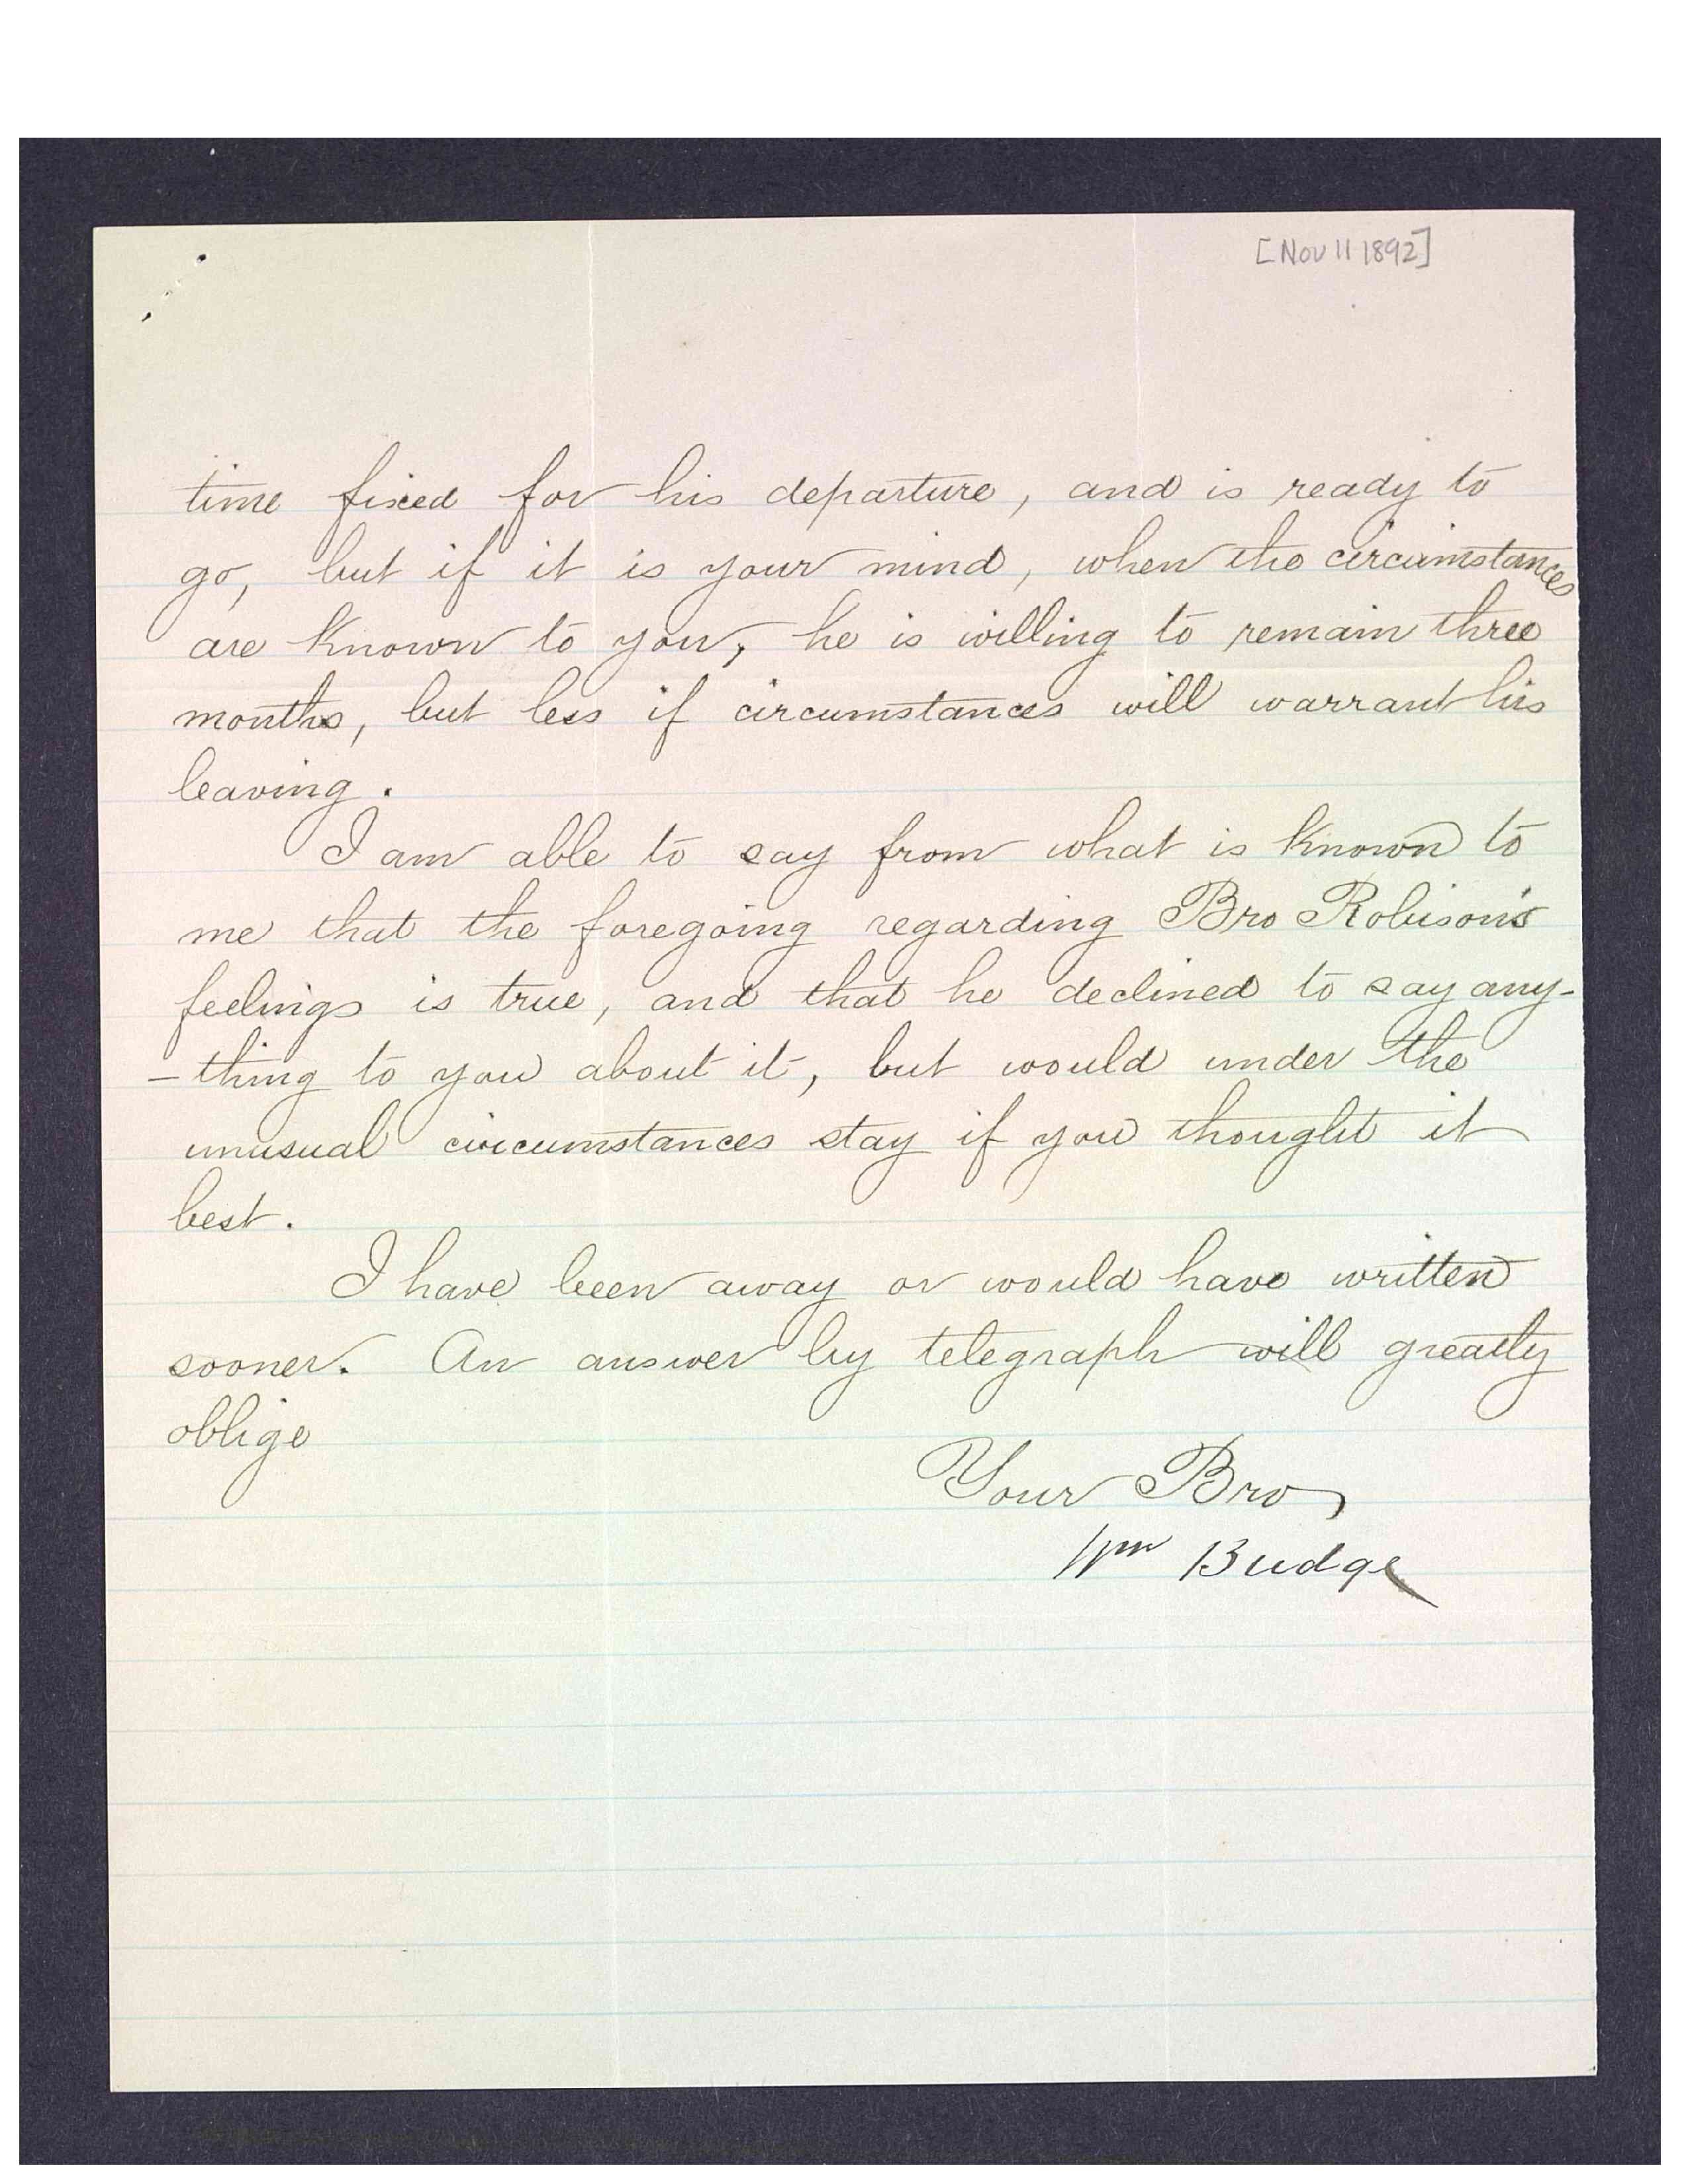 [Nov 11 1892]
time fixed for his departure, and is ready to
go, but if it is your mind, when the circumstances
are known to you, he is willing to remain three
months, but less if circumstances will warrant his
leaving.
I am able to say from what is known to
me that the foregoing regarding Bro Robison's
feelings is true, and that he declined to say any-
-thing to you about it, but would under the
unusual circumstances stay if you thought it
best.
I have been away or would have written
sooner. An answer by telegraph will greatly
oblige
Your Bro
Wm Budge